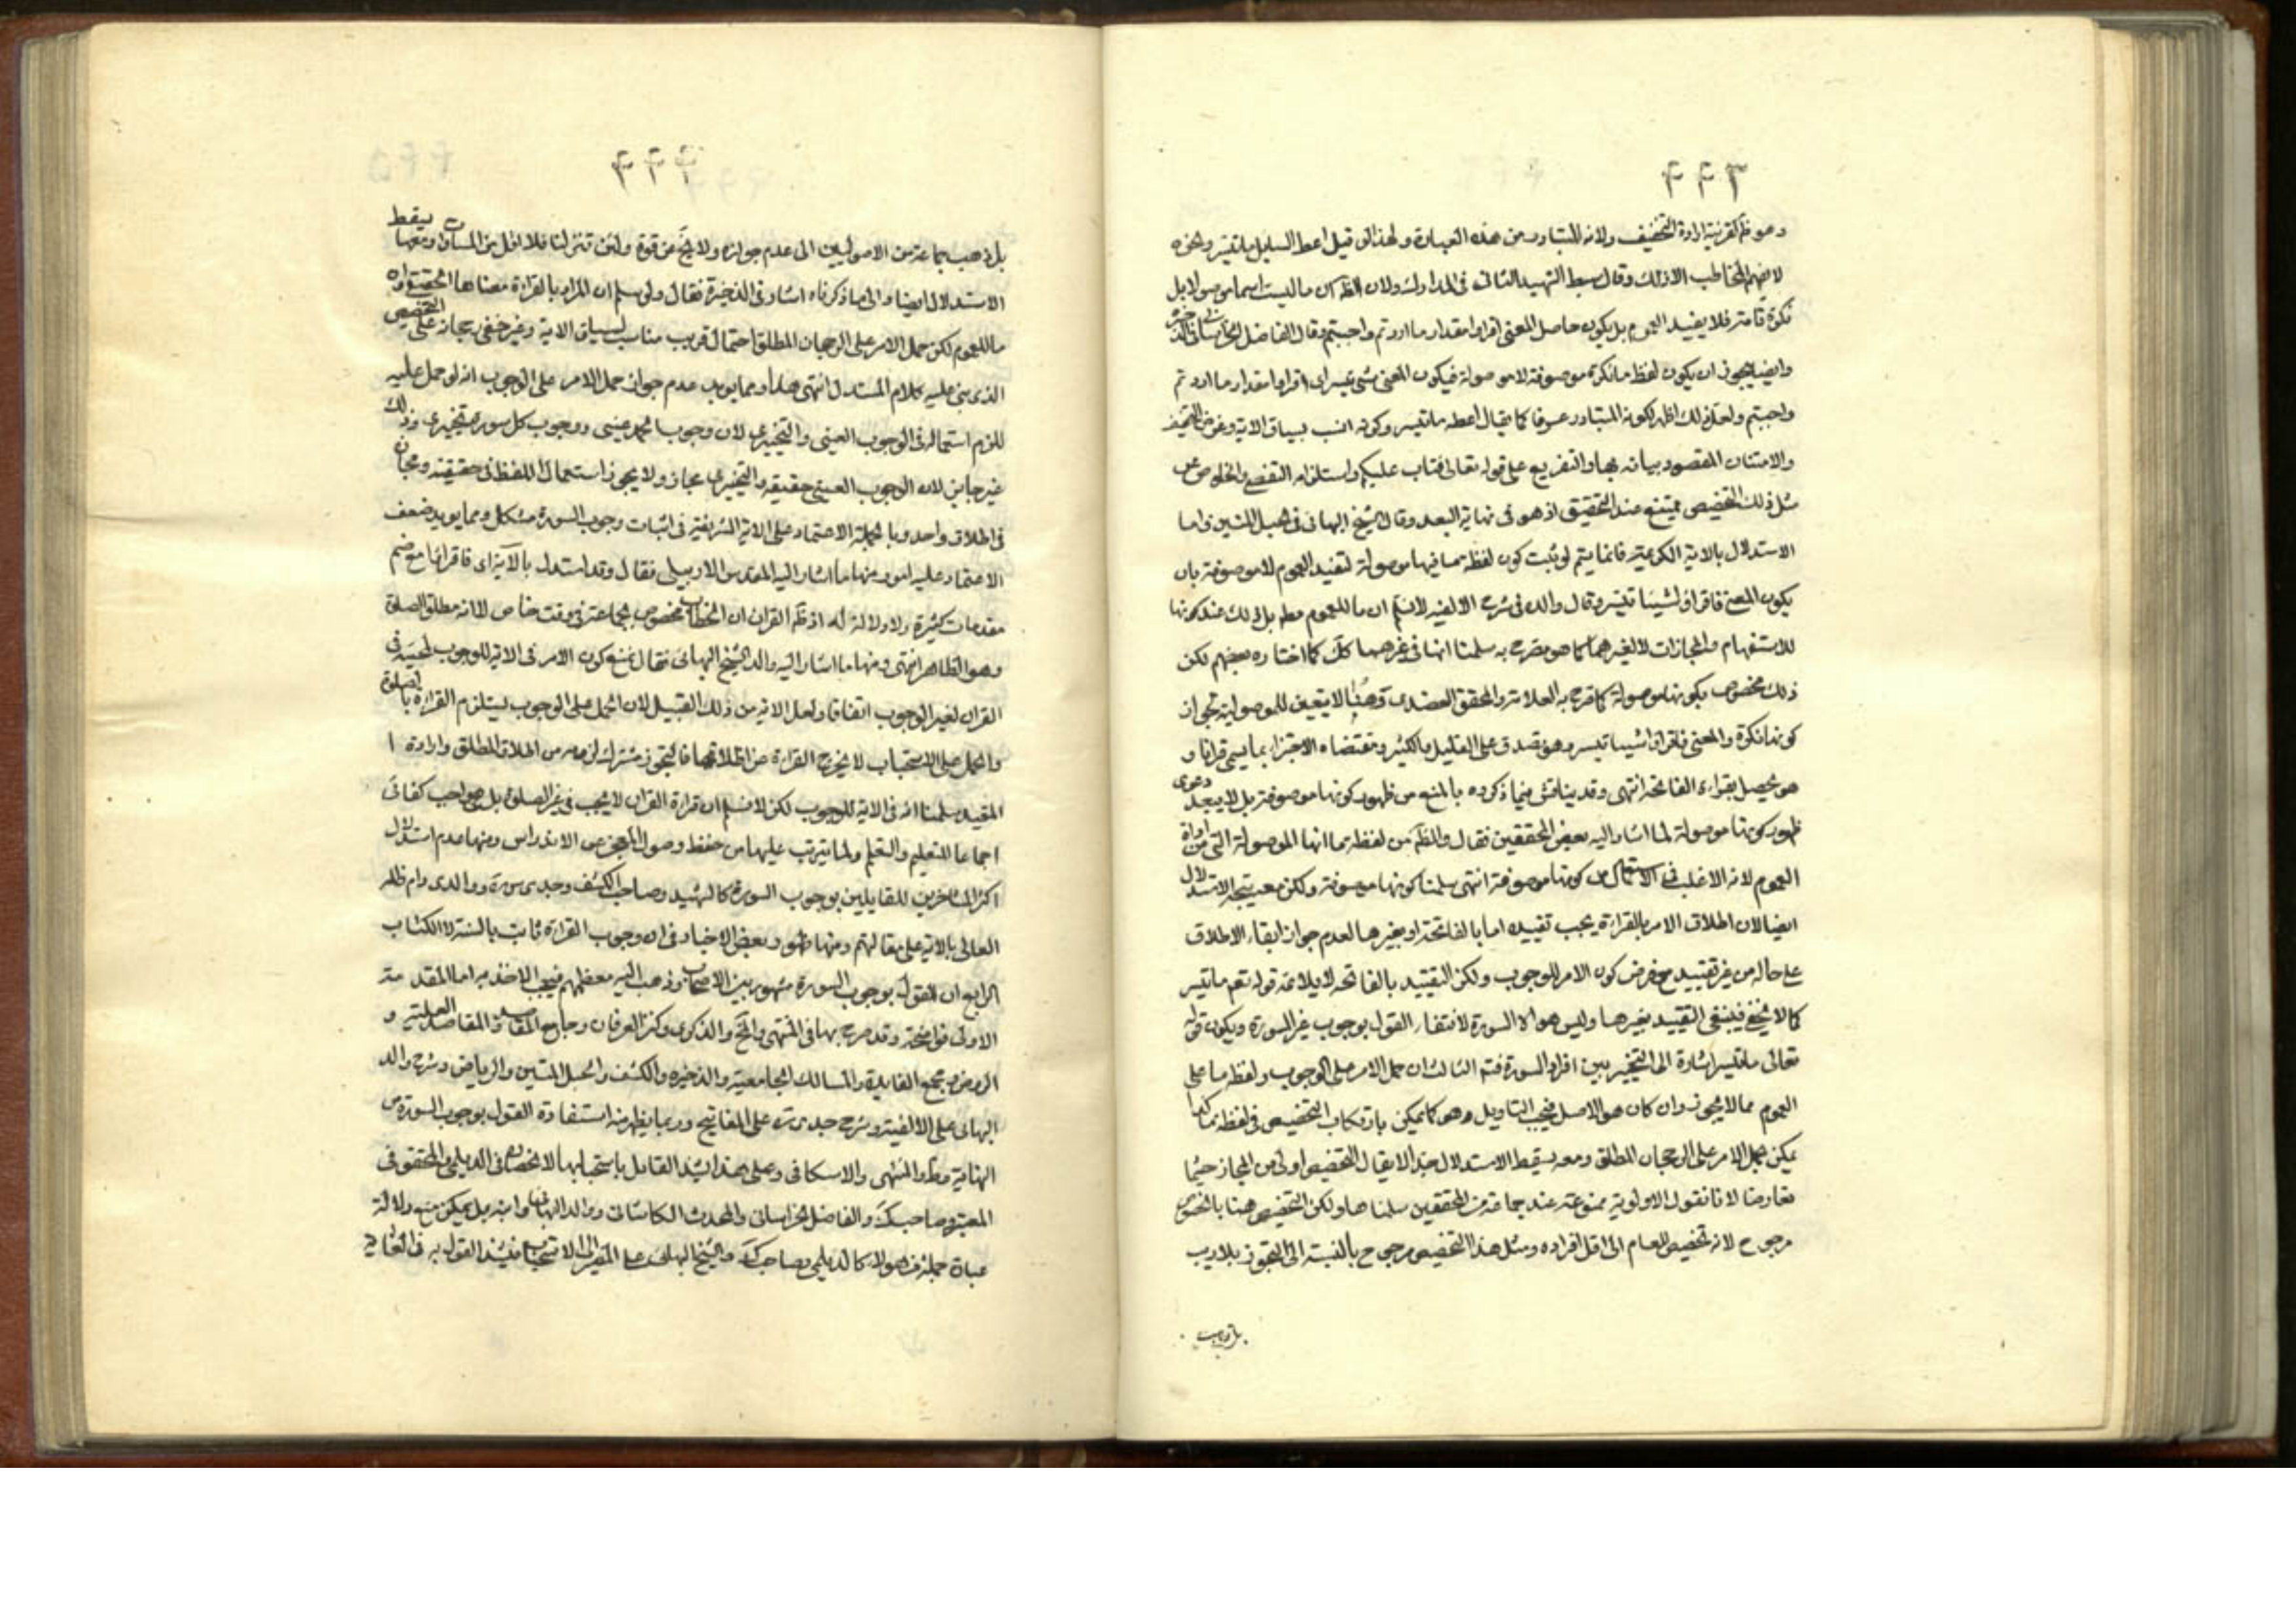 ۴۴۳
وهو ظ لقرينة ارادة التخفيف ولانه المتبادر من هذه العبارة ولهذا لو قيل اعط السايل ماتيسر ونحوه
لا يفهم المخاطب الا ذلك وقال سبط الشهيد الثانى فى المدارك ولان الظ ان ما ليست اسما موصولا بل
نكرة تامة فلا يفيد العموم بل يكون حاصل المعنى اقراوا مقدار ما اردتم واحببتم وقال الفاضل الخراسانى فى الذخيرة
وايضا يجوز ان يكون لفظ ما نكرة موصوفة لا موصولة فيكون المعنى شئ تيسر اى اقراوا مقدار ما اردتم
واحببتم ولعل ذلك اظهر لكونه المتبادر عرفا كما يقال اعطه ماتيسر وكونه انسب بسياق الاية وغرض التخفيف
والامتنان المقصود بيانه بها والتفريع على قوله تعالى فتاب عليكم واستلزامه التفصى والخلوص عن
مثل ذلك التخصيص ممتنع عند التحقيق اذ هو فى نهاية البعد وقال الشيخ البهائى فى الحبل المتين واما
الاستدلال بالاية الكريمة فانما يتم لو ثبت كون لفظة ما فيها موصولة لتفيد العموم لا موصوفة بان
يكون المعنى فاقراوا شيئا تيسر وقال والده فى شرح الالفية لا نسلم ان ما للعموم مط بل ذلك عند كونها
للاستفهام والمجازات لا لغيرهما كما هو مصرح به سلمنا انها فى غيرهما كك كما اختاره بعضهم لكن
ذلك مخصوص بكونها موصولة كما صرح به العلامة والمحقق العضدى وهنا لا يتعين للموصولية لجواز
كونها نكرة والمعنى فاقراوا شيئا تيسر وهو يصدق على القليل والكثير ومقتضاه الاجتزاء بما يسمى قرانا و
هو يحصل بقراءة الفاتحة انتهى وقد يناقش فيما ذكروه بالمنع من ظهور كونها موصوفة بل لا يبعد دعوى
ظهور كونها موصولة لما اشار اليه بعض المحققين فقال والظ من لفظة ما انها الموصولة التى من اداة
العموم لانه الاغلب فى الاستعمال من كونها موصوفة انتهى سلمنا كونها موصوفة ولكن معه يتجه الاستدلال
ايضا لان اطلاق الامر بالقراءة يجب تقييده اما بالفاتحة او بغيرها لعدم جواز ابقاء الاطلاق
على حاله من غير تقييد مع فرض كون الامر للوجوب ولكن التقييد بالفاتحة لا يلائمه قوله تعم ماتيسر
كما لا يخفى فينبغى التقييد بغيرها وليس هو الا السورة لانتفاء القول بوجوب غير السورة ويكون قوله
تعالى ماتيسر اشارة الى التخيير بين افراد السورة فتم الثالث ان حمل الامر على الوجوب ولفظ ما على
العموم مما لا يجوز وان كان هو الاصل فيجب التاويل وهو كما يمكن بارتكاب التخصيص فى لفظة ما كذا
يمكن بحمل الامر على الرجحان المطلق ومعه يسقط الاستدلال بهذا لا يقال التخصيص اولى من المجاز حيثما
تعارضا لانا نقول الاولوية ممنوعة عند جماعة من المحققين سلمناها ولكن التخصيص هنا بالخصوص
مرجوح لانه تخصيص العام الى اقل افراده ومثل هذا التخصيص مرجوح بالنسبة الى التجوز بلا ريب
بل ذهب
۴۴۴
بل ذهب جماعة من الاصوليين الى عدم جوازه ولا يخ عن قوة ولئن تنزلنا فلا اقل من المساوات ومعها يسقط
الاستدلال ايضا والى ما ذكرناه اشار فى الذخيرة فقال ولو سلم ان المراد بالقراءة معناها الحقيقى وان
ما للعموم لكن حمل الامر على الرجحان المطلق احتمال قريب مناسب لسياق الاية وغير خفى رجحانه على التخصيص
الذى بنى عليه كلام المستدل انتهى هذا ومما يويد عدم جواز حمل الامر على الوجوب انه لو حمل عليه
للزم استعماله فى الوجوب العينى والتخييرى لان وجوب الحمد عينى ووجوب كل سورة تخييرى وذلك
غير جايز لان الوجوب العينى حقيقة والتخييرى مجاز ولا يجوز استعمال اللفظ فى حقيقته ومجازه
فى اطلاق واحد وبالجملة الاعتماد على الاية الشريفة فى اثبات وجوب السورة مشكل ومما يويد ضعف
الاعتماد عليه امور منها ما اشار اليه المقدس الاردبيلى فقال وقد استدل بالآية اى فاقراوا مع ضم
مقدمات كثيرة ولا دلالة له اذ ظ القران ان الخطاب مخصوص بجماعة فى وقت خاص لا انه مطلق الصلوة
وهو الظاهر انتهى ومنها ما اشار اليه والد الشيخ البهائى فقال نمنع كون الامر فى الاية للوجوب لمجيئه فى
القران لغير الوجوب اتفاقا ولعل الاية من ذلك القبيل لان الحمل على الوجوب يستلزم القراءة بالصلوة
والحمل على الاستحباب لا يخرج القراءة عن اطلاقها فالتجوز مشترك لزومه من اطلاق المطلق وارادة ا
المقيد سلمنا انه فى الاية للوجوب لكن لا نسلم ان قراءة القران لا يجب فى غير الصلوة بل هو واجب كفائى
اجماعا للتعليم والتعلم ولما يترتب عليها من حفظ وصون المعجز عن الاندراس ومنها عدم استدلال
اكثر المتاخرين للقايلين بوجوب السورة كالشهيد وصاحب الكشف وجدى س سره ووالدى دام ظله
العالى بالاية على مقالتهم ومنها ظهور بعض الاخبار فى ان وجوب القراءة ثابت بالسنة لا الكتاب
الرابع ان القول بوجوب السورة مشهور بين الاصحاب وذهب اليه معظمهم فيجب الاخذ به اما المقدمة
الاولى فواضحة وقد صرح بها فى المنتهى والتح والذكرى وكنز العرفان وجامع المقاصد والمقاصد العلية و
الروض ومجمع الفايدة والمسالك الجامعية والذخيرة والكشف والحبل المتين والرياض وشرح والد
البهائى على الالفية وشرح جدى ره على المفاتيح وربما يظهر منه استفادة القول بوجوب السورة من
النهاية وط والمنتهى والاسكافى وعلى هذا يشذ القايل باستحبابها لانحصاره فى الديلمى والمحقق فى
المعتبر وصاحب ك والفاضل الخراسانى والمحدث الكاشانى ووالد البهائى وابنه بل يمكن منع دلالة
عبارة جملة من هولاء كالديلمى وصاحب ك والشيخ البهائى على المصير الى الاستحباب فيشذ القول به فى الغاية